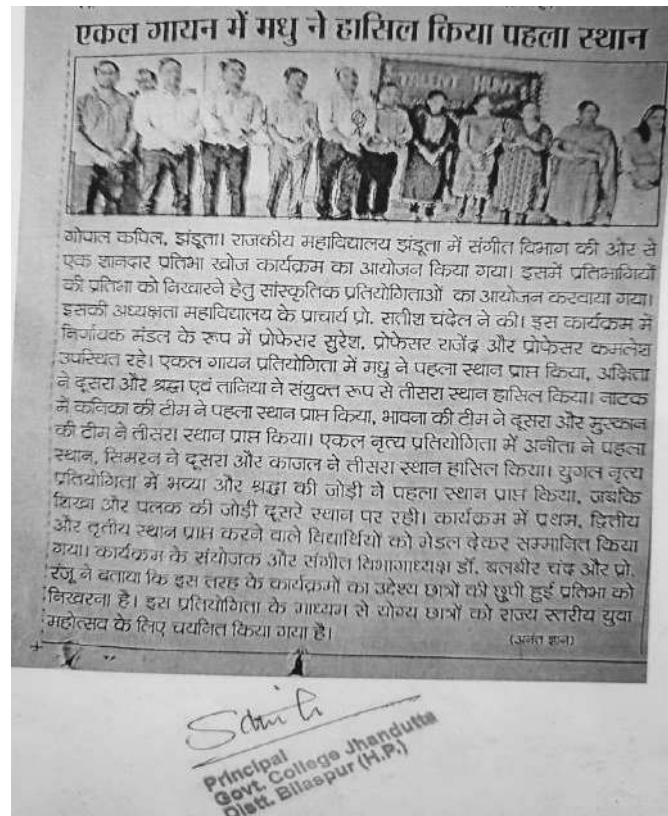 एकल गायन में मधु ने हासिल किया पहला स्थान
TALENT HUNT
गोपाल कपिल, झंडूता। राजकीय महाविद्यालय झंडूता में संगीत विभाग की ओर से
एक शानदार प्रतिभा खोज कार्यक्रम का आयोजन किया गया। इसमें प्रतिभागियों
की प्रतिभा को निखारने हेतु सांस्कृतिक प्रतियोगिताओं का आयोजन करवाया गया।
इसकी अध्यक्षता महाविद्यालय के प्राचार्य प्रो. सतीश चंदेल ने की। इस कार्यक्रम में
निर्णायक मंडल के रूप में प्रोफेसर सुरेश, प्रोफेसर राजेंद्र और प्रोफेसर कमलेश
उपस्थित रहे। एकल गायन प्रतियोगिता में मधु ने पहला स्थान प्राप्त किया, अक्षिता
ने दूसरा और श्रद्धा एवं तानिया ने संयुक्त रूप से तीसरा स्थान हासिल किया। नाटक
में कनिका की टीम ने पहला स्थान प्राप्त किया, भावना की टीम ने दूसरा और मुस्कान
की टीम ने तीसरा स्थान प्राप्त किया। एकल नृत्य प्रतियोगिता में अनीता ने पहला
स्थान, सिमरन ने दूसरा और काजल ने तीसरा स्थान हासिल किया। युगल नृत्य
प्रतियोगिता में भव्या और श्रद्धा की जोड़ी ने पहला स्थान प्राप्त किया, जबकि
शिखा और पलक की जोड़ी दूसरे स्थान पर रही। कार्यक्रम में प्रथम, द्वितीय
और तृतीय स्थान प्राप्त करने वाले विद्यार्थियों को मेडल देकर सम्मानित किया
गया। कार्यक्रम के संयोजक और संगीत विभागाध्यक्ष डॉ. बलबीर चंद और प्रो.
रंजू ने बताया कि इस तरह के कार्यक्रमों का उद्देश्य छात्रों की छुपी हुई प्रतिभा को
निखरना है। इस प्रतियोगिता के माध्यम से योग्य छात्रों को राज्य स्तरीय युवा
महोत्सव के लिए चयनित किया गया है।
(अनंत ज्ञान)
Principal
Govt. College Jhandutta
Distt. Bilaspur (H.P.)